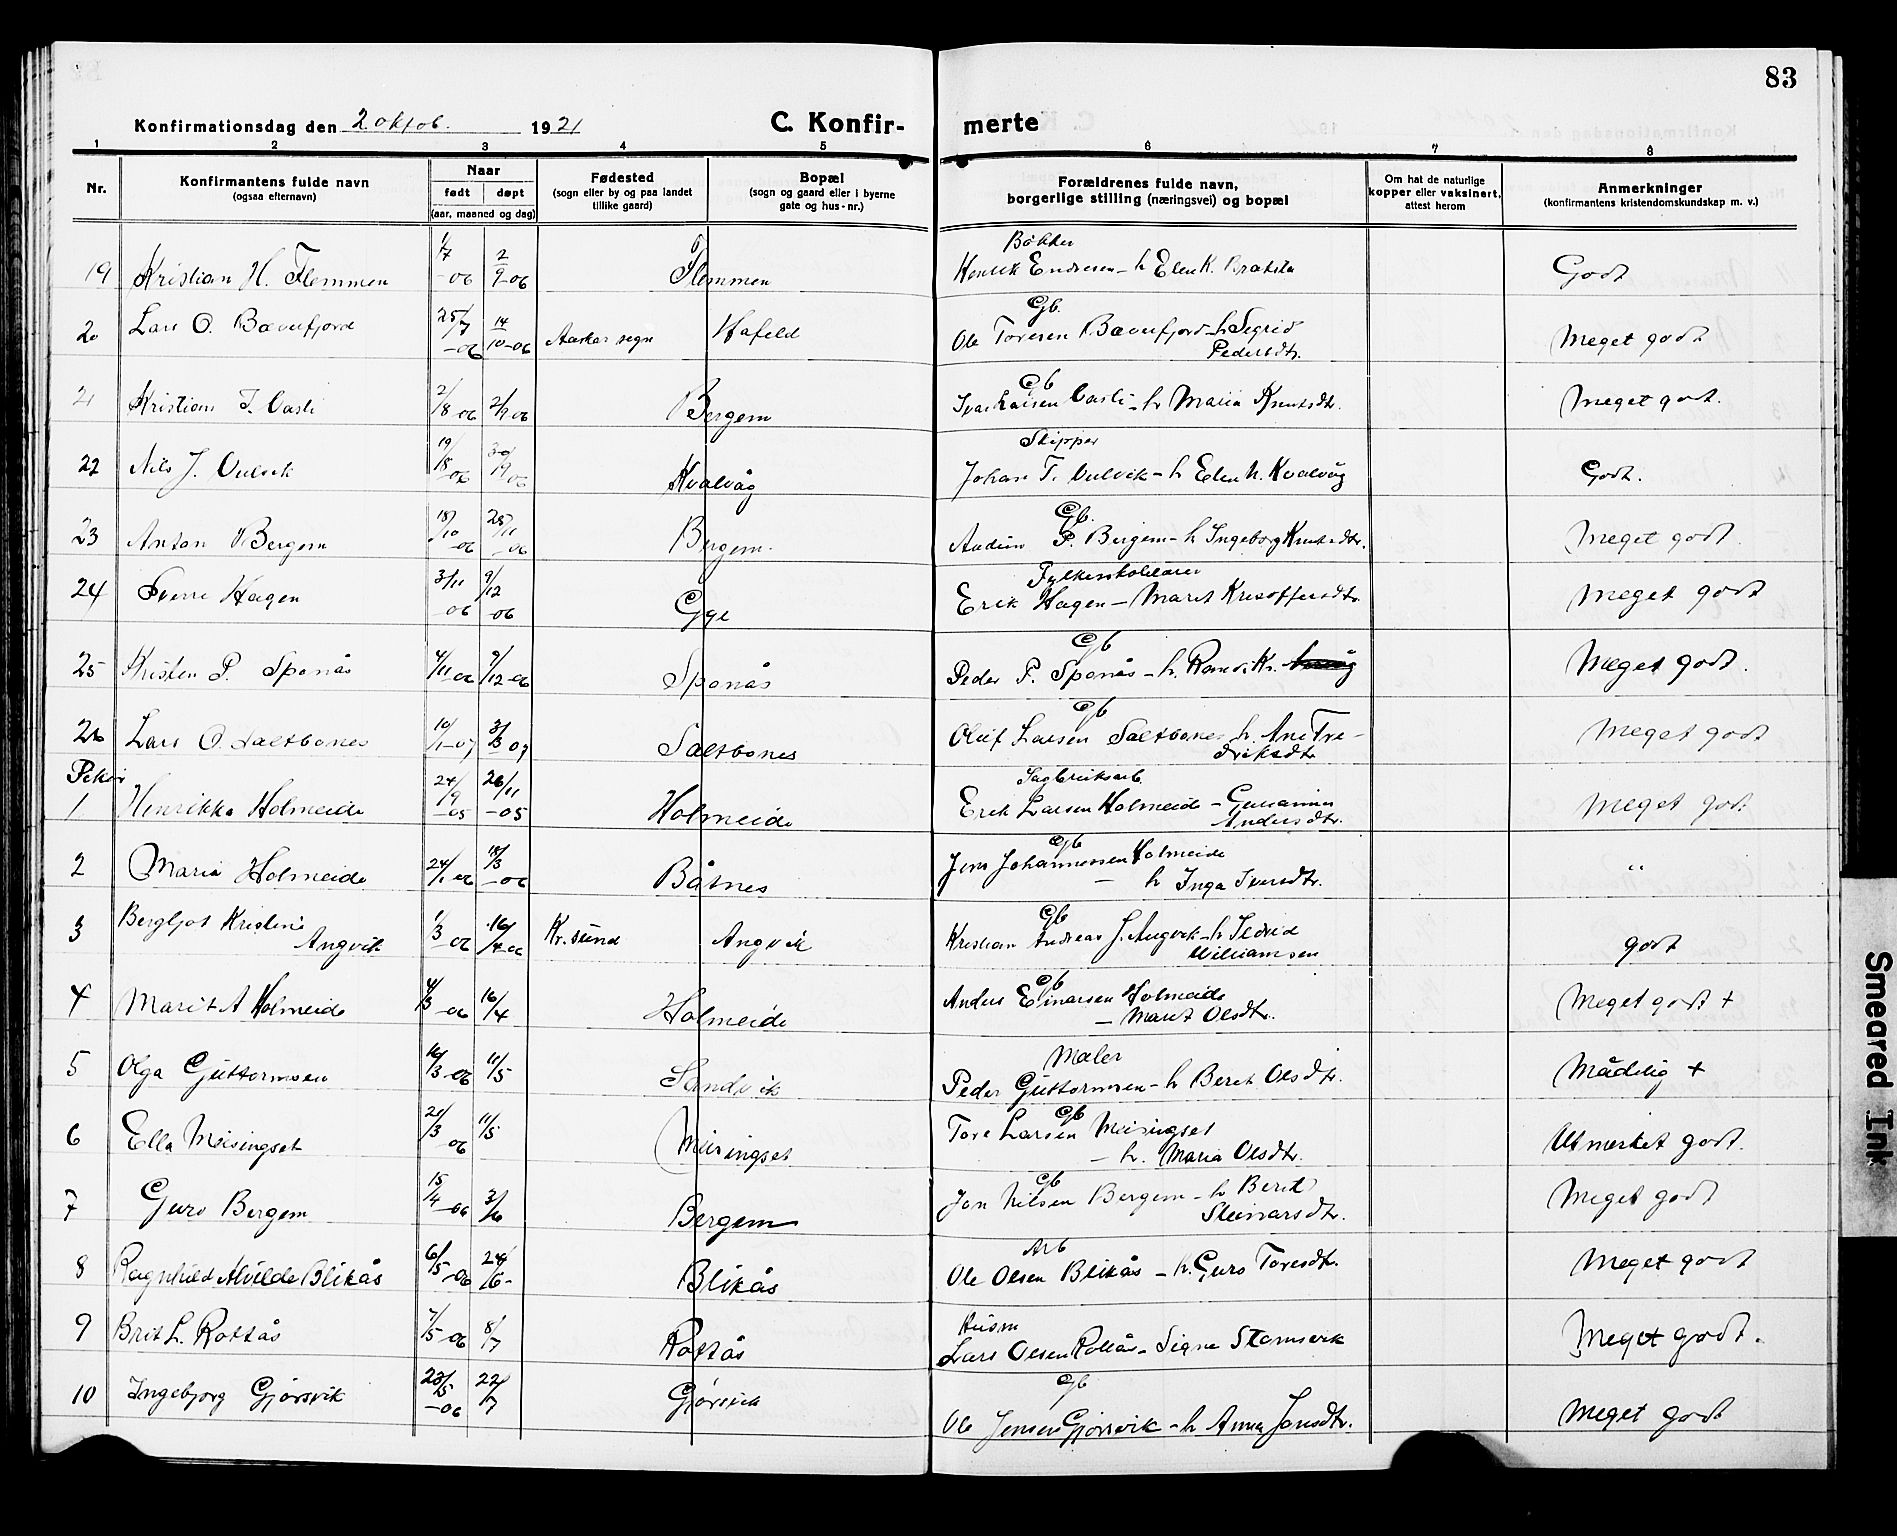 83
Konfirmationsdag den 2 oktob. 1921
C. Konfir- merte
1 2 3 4 5 6 7 8
Nr.
Konfirmantens fulde navn
(ogsaa efternavn)
Naar
født døpt
(aar, maaned og dag)
Fødested
(sogn eller by og paa landet
tillike gaard)
Bopæl
(sogn og gaard eller i byerne
gate og hus-nr.)
Forældrenes fulde navn,
borgerlige stilling (næringsvei) og bopæl
Om hat de naturlige
kopper eller vaksinert,
attest herom
Anmerkninger
(konfirmantens kristendomskundskap m. v.)
19 Kristian H. Flemmen 1/7 -06 2/9 -06 Flemmen Bøkker Henrik Endresen - h Elen K. Godt
20 Lars O. Bæverfjord 25/7 -06 14/10 -06 Aasskar sogn Hafeld Gb. Ole Toresen Bæverfjord - h Sigrid
Pedersdtr. Meget godt
21 Kristian I. Vasli 2/8 06 2/9 06 Bergem Gb Ivar Larsen Vasli - h Maria Knutsdtr. Meget godt.
22 Nils J. Vulvik 19/8 06 30/9 06 Kvalvåg Skipper Johan T. Vulvik - h Elen N. Kvalvåg Godt.
23 Anton Bergem 18/10 -06 25/11 -06 Bergem. Gb. Audun P. Bergem - h Ingeborg Knutsdtr. Meget godt.
24 Sverre Hagen 3/11 -06 9/12 -06 Gyl Fylkesskolelærer Erik Hagen - Marit Kristoffersdtr Meget godt
25 Kristen P. Sponås 4/11 -06 9/12 -06 Sponås Gb Peder P. Sponås - h. Randi Kr. Meget godt.
26 Lars O. Saltbones 10/1 -07 3/3 07 Saltbones Gb Oluf Larsen Saltbones h. Ane Fre-
driksdtr Meget godt
Piker
1 Henrikka Holmeide 24/9 -05 26/11 -05 Holmeide Sagbruksarb. Erik Larsen Holmeide - Gurianna
Andersdtr. Meget godt
2 Maria Holmeide 24/1 06 18/3 -06 Båtnes Gb Jens Johannessen Holmeide
- h Inga Iversdtr. "
3 Bergljot Kristine
Angvik 1/3 06 16/4 06 Kr.sund Angvik Gb Kristian Andreas J. Angvik - h
Williamsen godt
4 Marit A Holmeide 4/3 -06 16/4 Holmeide Gb Anders Einarsen Holmeide
- Marit Olsdtr. Meget godt +
5 Olga Guttormsen 16/3 -06 11/5 Sandvik Maler Peder Guttormsen - h Beret Olsdtr. Mådelig +
6 Ella Meisingset 21/3 06 11/5 Meisingset Gb Tore Larsen Meisingset
- h. Maria Olsdtr. Utmerket godt.
7 Guro Bergem 15/4 -06 3/6 Bergem Gb Jon Nilsen Bergem - h Berit
Steinarsdtr. Meget godt
8 Ragnhild Alvilde Blikås 6/5 -06 24/6 - Blikås Arb Ole Olsen Blikås - h. Guro Toresdtr. Meget godt
9 Brit L. Rottås 7/5 -06 8/7 Rottås Husm Lars Olsen Rottås - Signe Stomsvik Meget godt.
10 Ingebjørg Gjørsvik 23/5 -06 22/7 Gjørsvik Gb Ole Jensen Gjørsvik - h Anna Jonsdtr. Meget godt
Smeared Ink